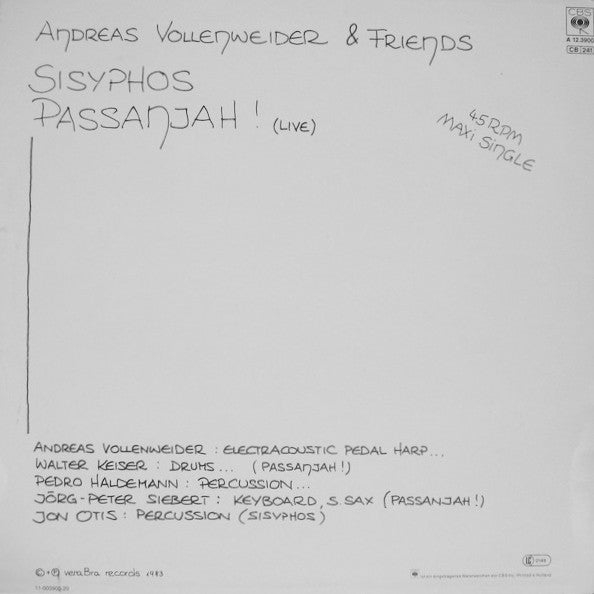 Andreas Vollenweider & Friends
CBS
A 12.3906
CB 241
Sisyphos
Passanjah! (LIVE)
45 RPM
Maxi Single
Andreas Vollenweider : Electracoustic Pedal Harp...
Walter Keiser : Drums... (Passanjah!)
Pedro Haldemann : Percussion...
Jörg-Peter Siebert : Keyboard, S. Sax (Passanjah!)
Jon Otis : Percussion (Sisyphos)
© + ℗ veraBra records 1983
11-003906-20